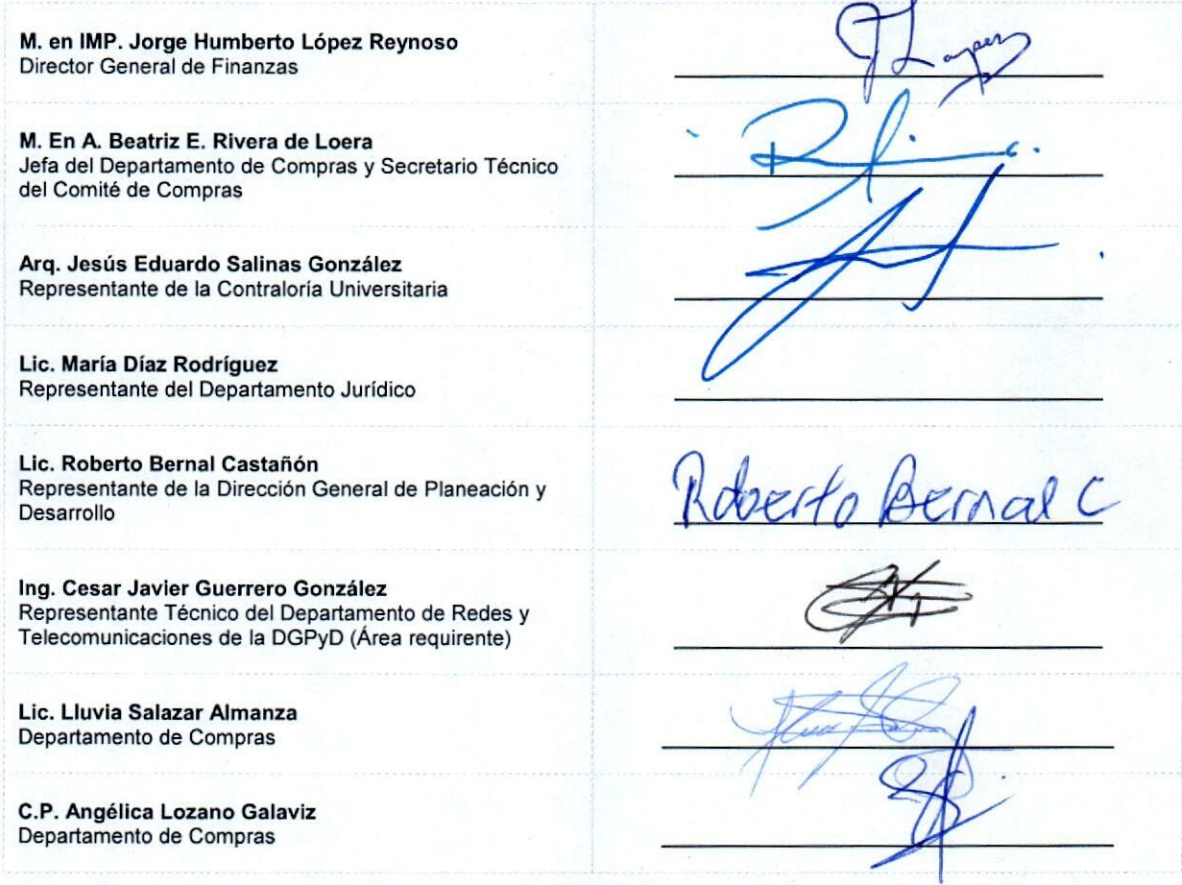 M. en IMP. Jorge Humberto López Reynoso
Director General de Finanzas
J Lopez
M. En A. Beatriz E. Rivera de Loera
Jefa del Departamento de Compras y Secretario Técnico
del Comité de Compras
Arq. Jesús Eduardo Salinas González
Representante de la Contraloría Universitaria
Lic. María Díaz Rodríguez
Representante del Departamento Jurídico
Lic. Roberto Bernal Castañón
Representante de la Dirección General de Planeación y
Desarrollo
Roberto Bernal C
Ing. Cesar Javier Guerrero González
Representante Técnico del Departamento de Redes y
Telecomunicaciones de la DGPyD (Área requirente)
Lic. Lluvia Salazar Almanza
Departamento de Compras
C.P. Angélica Lozano Galaviz
Departamento de Compras